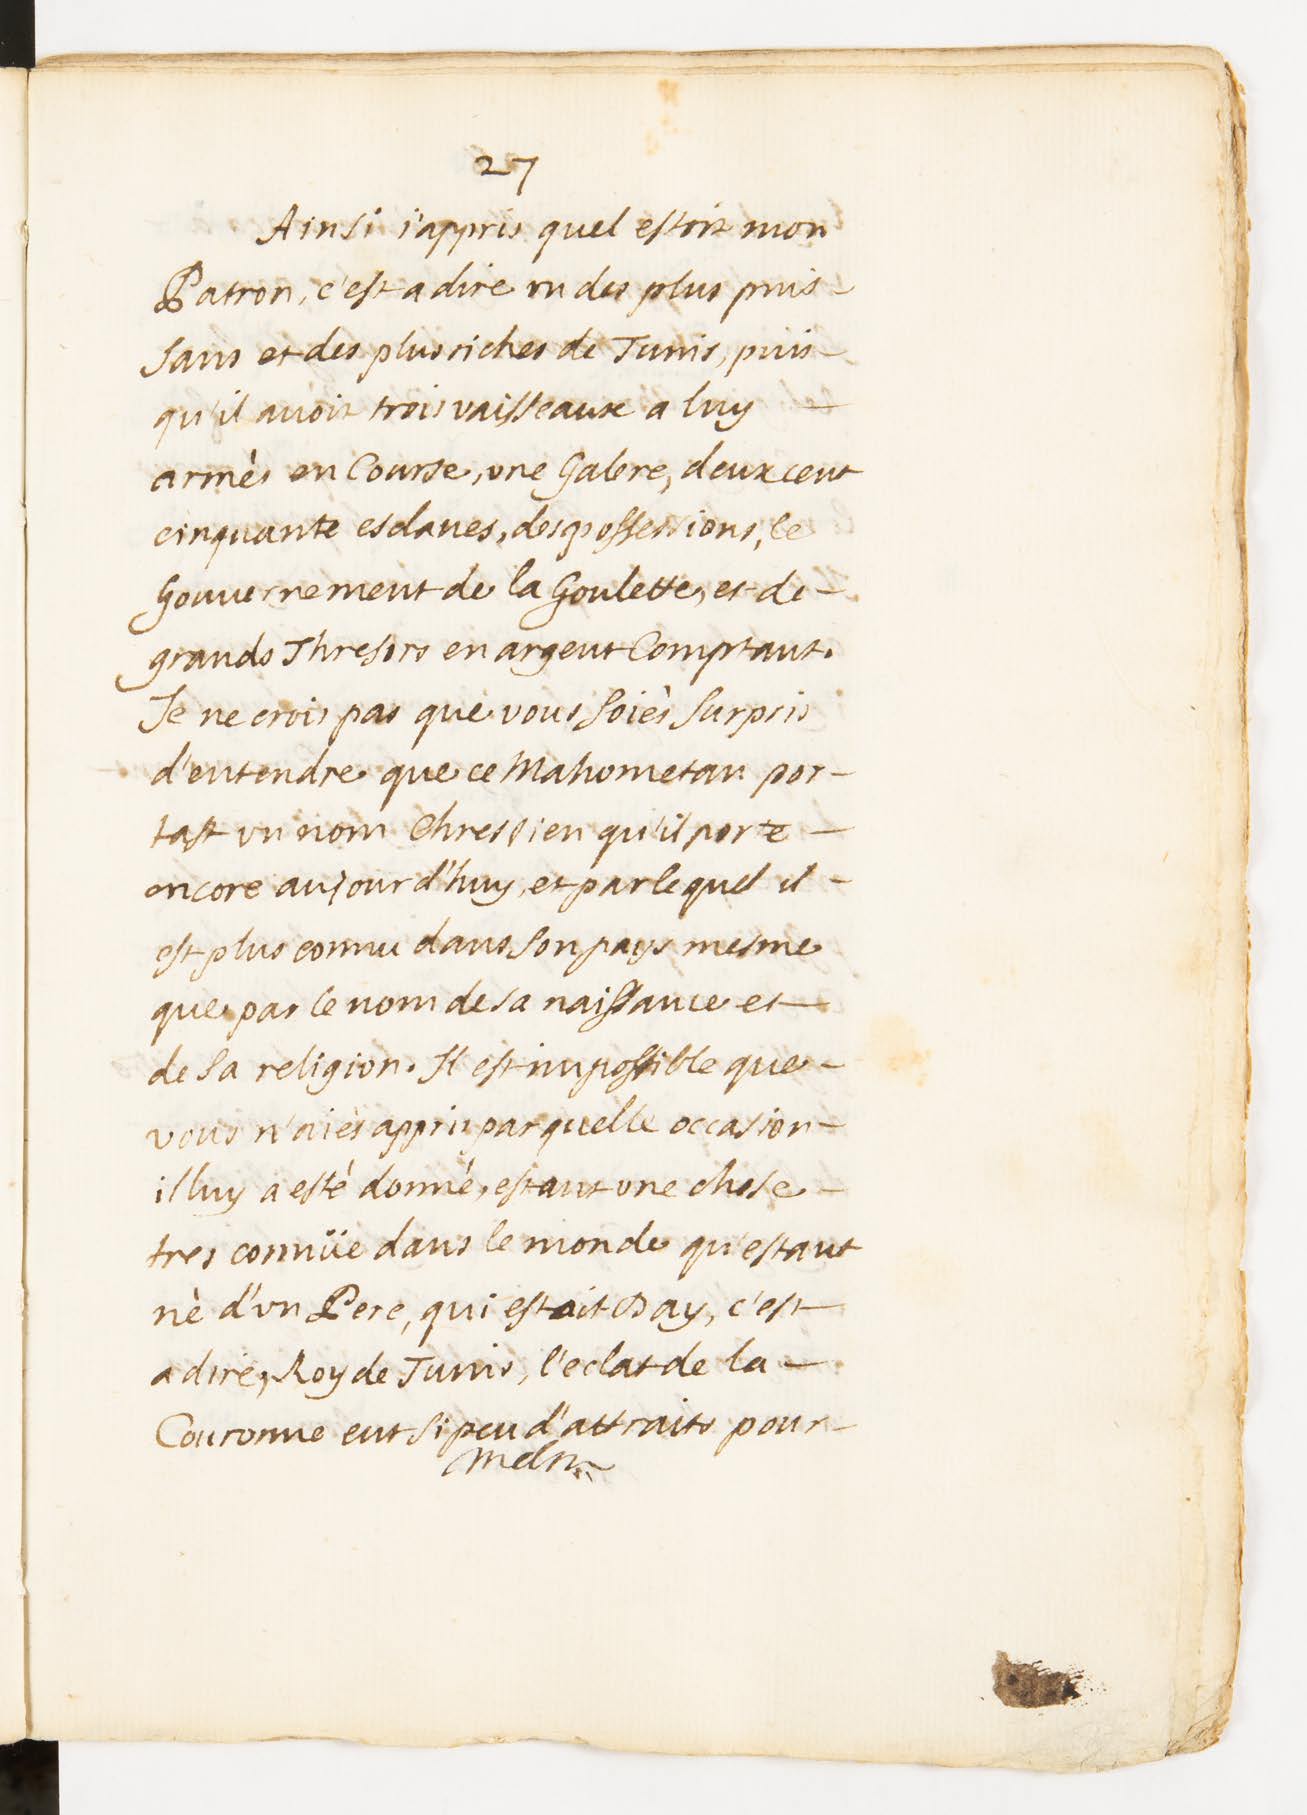 27
Ainsi i'appris quel estoit mon
Patron, c'est a dire vn des plus puis-
sans et des plus riches de Tunis, puis-
qu'il auoit trois vaisseaux a luy
armès en Course, vne Galere, deux cent
cinquante esclaues, des possessions, le
Gouuernement de la Goulette, et de-
grands Thresors en argent Comptant.
Je ne crois pas que vous soiès surpris
d'entendre que ce Mahometan por-
tast vn nom Chrestien qu'il porte-
encore aujourd'huy, et par le quel il-
est plus connu dans son pays mesme
que par le nom de sa naissance et-
de sa religion. Il est impossible que-
vous n'aiès appris par quelle occasion-
il luy a esté donné, estant vne chose-
tres connüe dans le monde qu'estant
nè d'vn Pere, qui estoit Day, c'est-
a dire, Roy de Tunis, l'eclat de la-
Couronne eut si peu d'attraits pour-